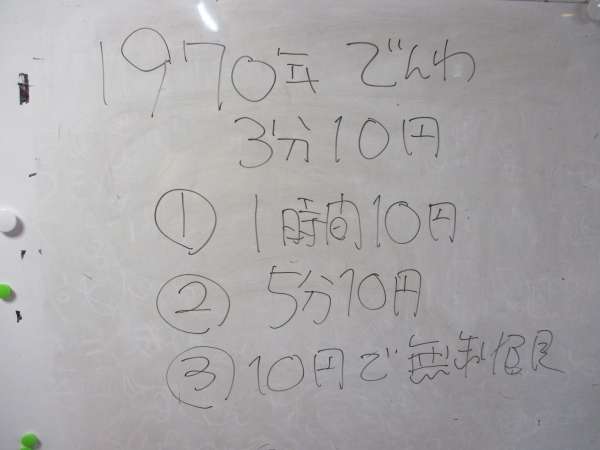 1970年 でんわ
3分10円
① 1時間10円
② 5分10円
③ 10円で無制限